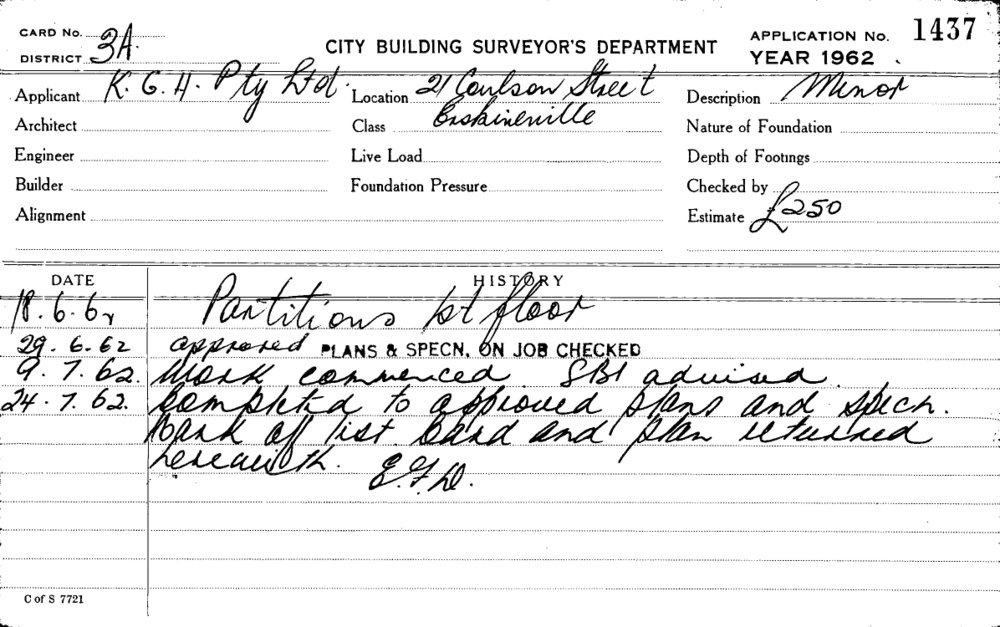 CARD No. 3A.
DISTRICT
CITY BUILDING SURVEYOR'S DEPARTMENT
APPLICATION No. 1437
YEAR 1962
Applicant K. G. H. Pty Ltd.
Location 21 Coulson Street
Erskineville
Description Minor
Architect
Class
Nature of Foundation
Engineer
Live Load
Depth of Footings
Builder
Foundation Pressure
Checked by
Alignment
Estimate £250
DATE HISTORY
18.6.62 Partitions 1st floor
29.6.62 approved PLANS & SPECN. ON JOB CHECKED
9.7.62. Work commenced. SBI advised.
24.7.62. Completed to approved plans and specn.
Mark off list. Card and plan returned
herewith. E.F.D.
C of S 7721